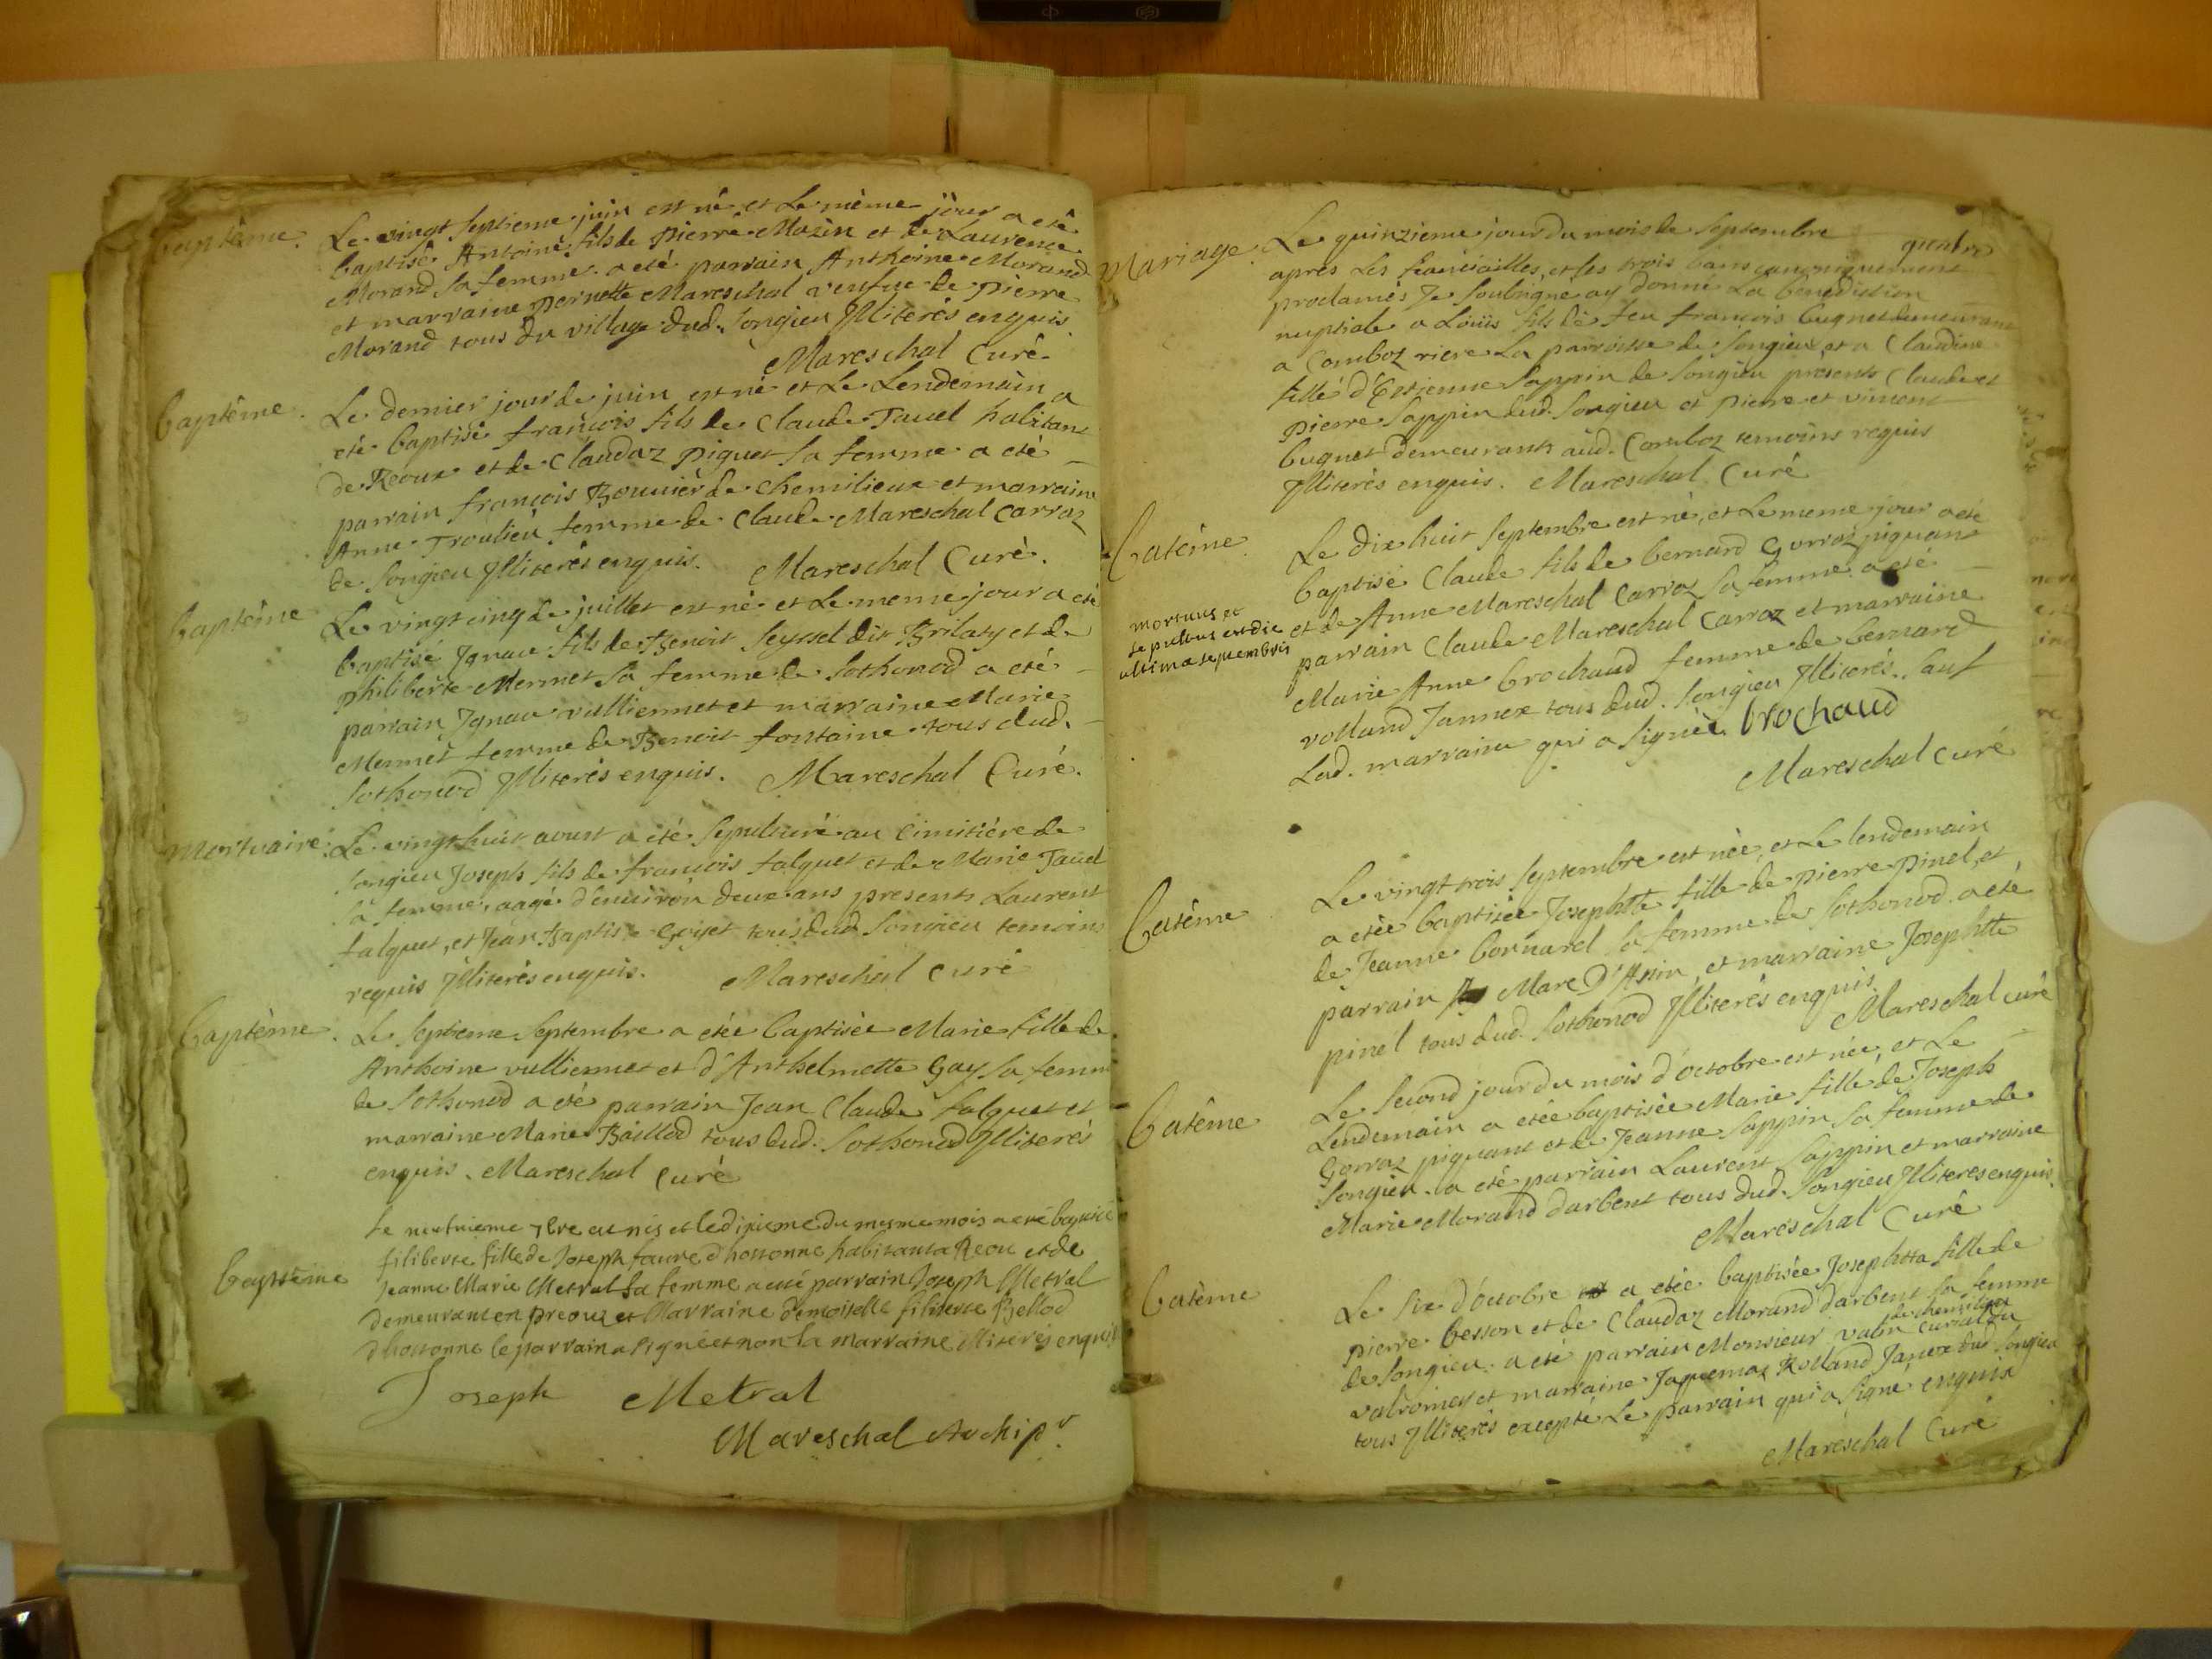 baptême. Le vingt septieme juin est né et Le même jour a eté
baptisé Antoine fils de pierre Mazin et de Laurence
Morand sa femme. a eté parrain Anthoine Morand
et marraine pernette Mareschal veufve de pierre
Morand tous du village dud. songieu Illiterés enquis.
Mareschal Curé
baptême. Le dernier jour de juin est né et Le Lendemain a
eté baptisé francois fils de Claude Tavel habitant
de Reoux et de Claudaz piguet sa femme a eté
parrain francois Bouvier de chemilieux et marraine
Anne Troulieu femme de Claude Mareschal Carraz
de songieu Illiterés enquis. Mareschal Curé.
baptême Le vingt cinq de juillet est né et Le meme jour a eté
baptisé Ignace fils de Benoit seyssel dit Brilaty et de
philiberte Mermet sa femme de sothonod a eté
parrain Ignace vulliermet et marraine Marie
Mermet femme de Benoit fontaine tous dud.
sothonod Illiterés enquis. Mareschal Curé.
Mortuaire. Le vingt huit aoust a eté sepulturé au cimitiére de
songieu Joseph fils de francois falquet et de Marie Tavel
sa femme, aagé d'environ deux ans presents Laurent
falquet, et Jean Baptiste Goyet tous dud songieu temoins
requis Illiterés enquis. Mareschal Curé
baptême. Le septieme septembre a etée baptisée Marie fille de
Anthoine vulliermet et d'Anthelmette Gay sa femme
de sothonod a eté parrain Jean Claude falquet et
marraine Marie Baillod tous dud. sothonod Illiterés
enquis. Mareschal Curé
baptême Le neufvieme 7bre et le dixieme du mesme mois a eté baptisée
filiberte fille de Joseph favre d'hotonne habitant a Reou et de
Jeanne Marie Metral sa femme a eté parrain Joseph Metral
demeurant en preouz et Marraine demoiselle filiberte Bellod
d'hotonne le parrain a signé et non la marraine Illiterés enquis
Joseph Metral
Mareschal Archip.r
Mariage. Le quinzieme jour du mois de septembre
apres Les fiancailles, et les trois bans canoniquement
proclamés Je soubsigné ay donné La benediction
nuptiale a Loüis fils de feu francois bugnet demeurant
a Comboz riere La parroisse de songieu, et a Claudine
fille d'Estienne sappin de songieu presents Claude et
pierre sappin dud. songieu et pierre et vincent
bugnet demeurants aud. Comboz temoins requis
Illiterés enquis. Mareschal Curé
Batême Le dix huit septembre est né, et Le meme jour a eté
baptisé Claude fils de bernard Gorraz piquant
et de Anne Mareschal Carraz sa femme a eté
parrain Claude Mareschal Carraz et marraine
Marie Anne brochaud femme de bernard
volland Jannex tous dud. songieu Illiterés. sauf
Lad. marraine qui a signée. brochaud
Mareschal Curé
mortuus et
sepultus est die
ultima septembris
Batême Le vingt trois septembre est née, et Le lendemain
a etée baptisée Josephtte fille de pierre pinel, et
de Jeanne Cornarel sa femme de sothonod. a eté
parrain Marc D'Assin, et marraine Josephtte
pinel tous dud. sothonod Illiterés enquis.
Mareschal curé
Batême Le second jour du mois d'octobre est née, et Le
Lendemain a etée baptisée Marie fille de Joseph
Gorraz piquant et de Jeanne sappin sa femme de
songieu. a eté parrain Laurent sappin et marraine
Marie Morand darbent tous dud. songieu Illiteres enquis.
Mareschal Curé
Batême Le six d'octobre a etée baptisée Josephtta fille de
pierre besson et de Claudaz Morand darbent sa femme
de songieu. a eté parrain Monsieur valin curial du
de chemillieu
valromey et marraine Jaquemaz Rolland Janex dud songieu
tous Illiterés excepté Le parrain qui a signé enquis
Mareschal Curé